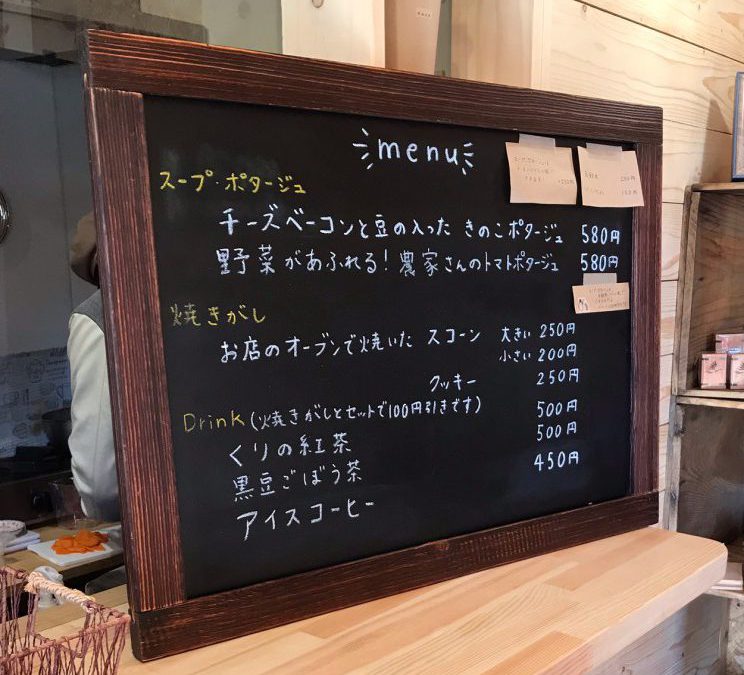 menu
スープ・ポタージュ
チーズベーコンと豆の入った きのこポタージュ 580円
野菜があふれる!農家さんのトマトポタージュ 580円
焼きがし
お店のオーブンで焼いた スコーン 大きい 250円
小さい 200円
クッキー 250円
Drink(焼きがしとセットで100円引きです)
くりの紅茶 500円
黒豆ごぼう茶 500円
アイスコーヒー 450円